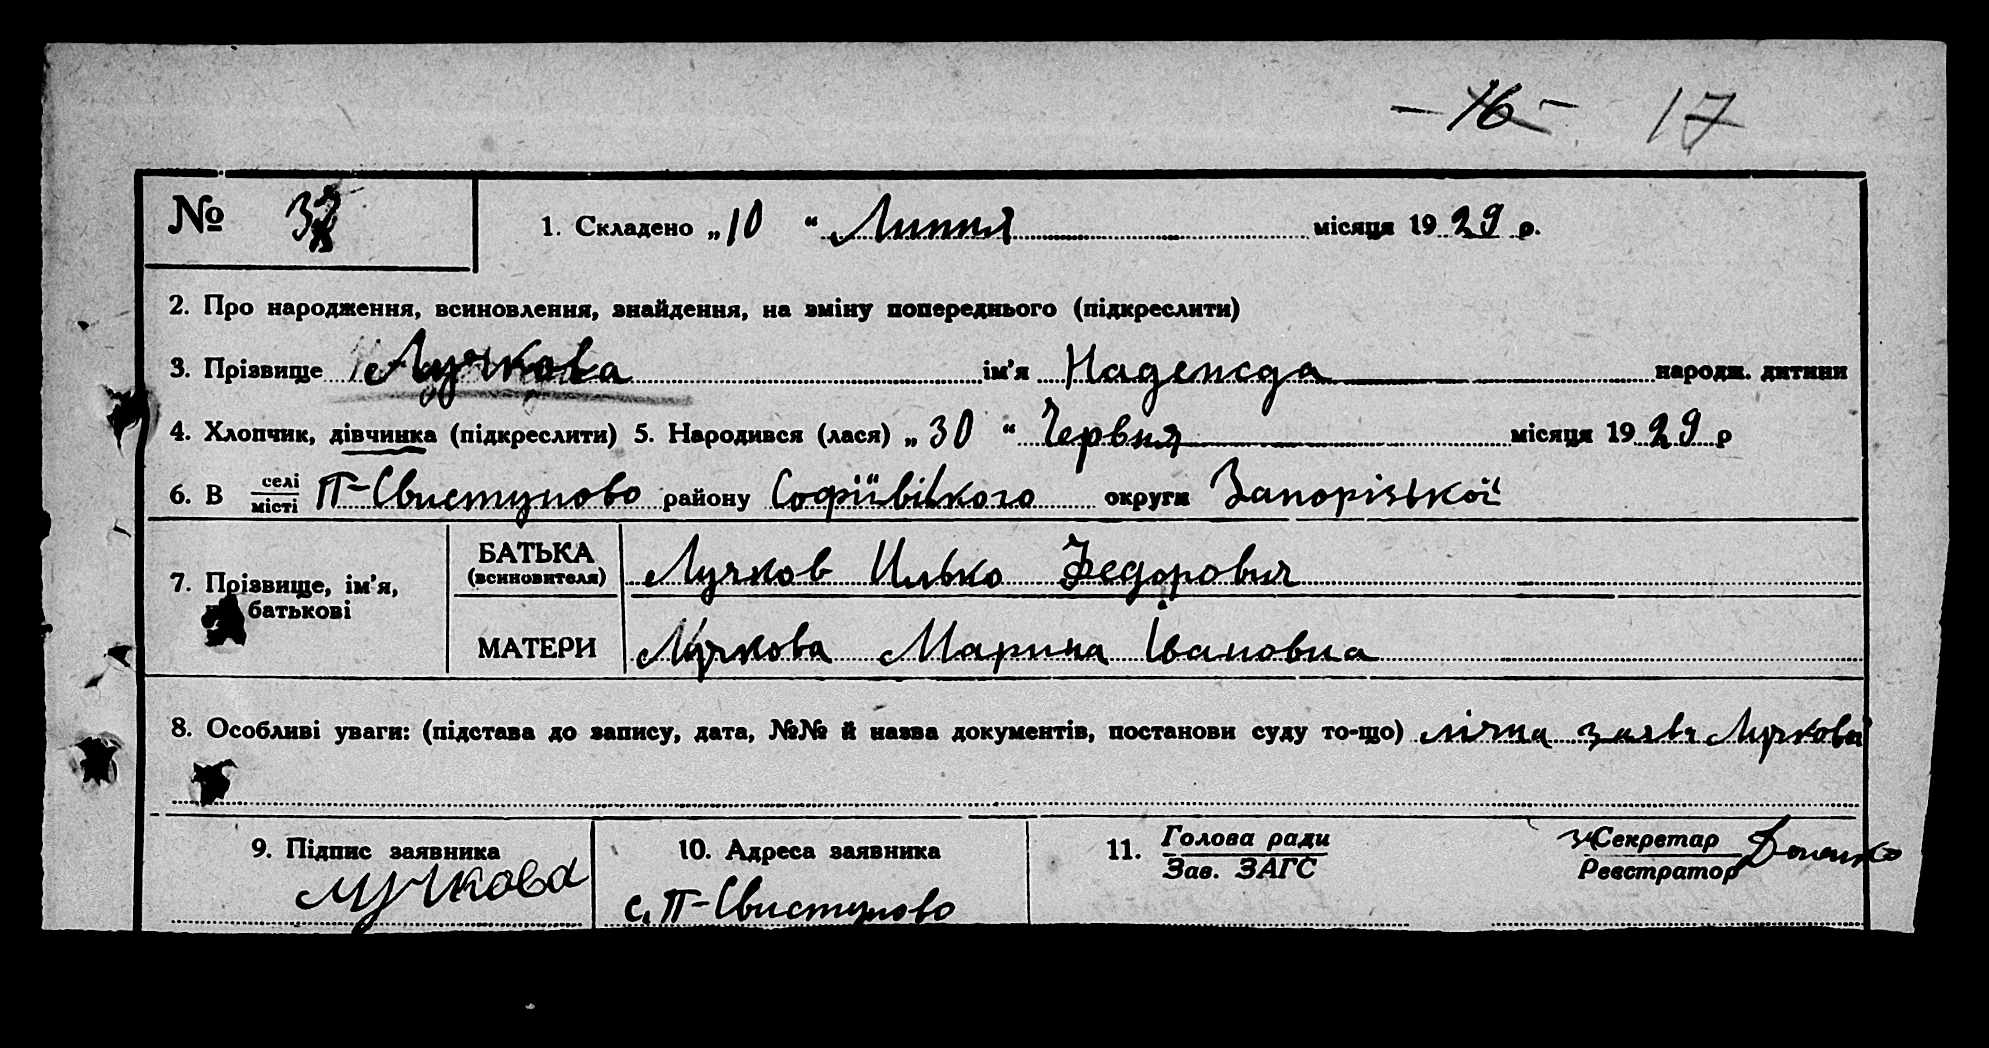 16 17
№ 1. Складено „10“ Липня місяця 1929 р.
2. Про народження, всиновлення, знайдення, на зміну попереднього (підкреслити)
3. Прізвище Лучкова ім'я Надежда народж. дитини
4. Хлопчик, дівчинка (підкреслити) 5. Народився (лася) „30“ Червня місяця 1929 р
6. В селі/місті П-Свистуново району Софіївського округи Запорізької
7. Прізвище, ім'я, батькові
БАТЬКА (всиновителя) Лучков Илько Федорович
МАТЕРИ Лучкова Марина Івановна
8. Особливі уваги: (підстава до запису, дата, №№ й назва документів, постанови суду то-що) лічна заява Лучковой
9. Підпис заявника 10. Адреса заявника 11. Голова ради Секретар
Зав. ЗАГС Реєстратор
Лучкова с. П-Свистуново